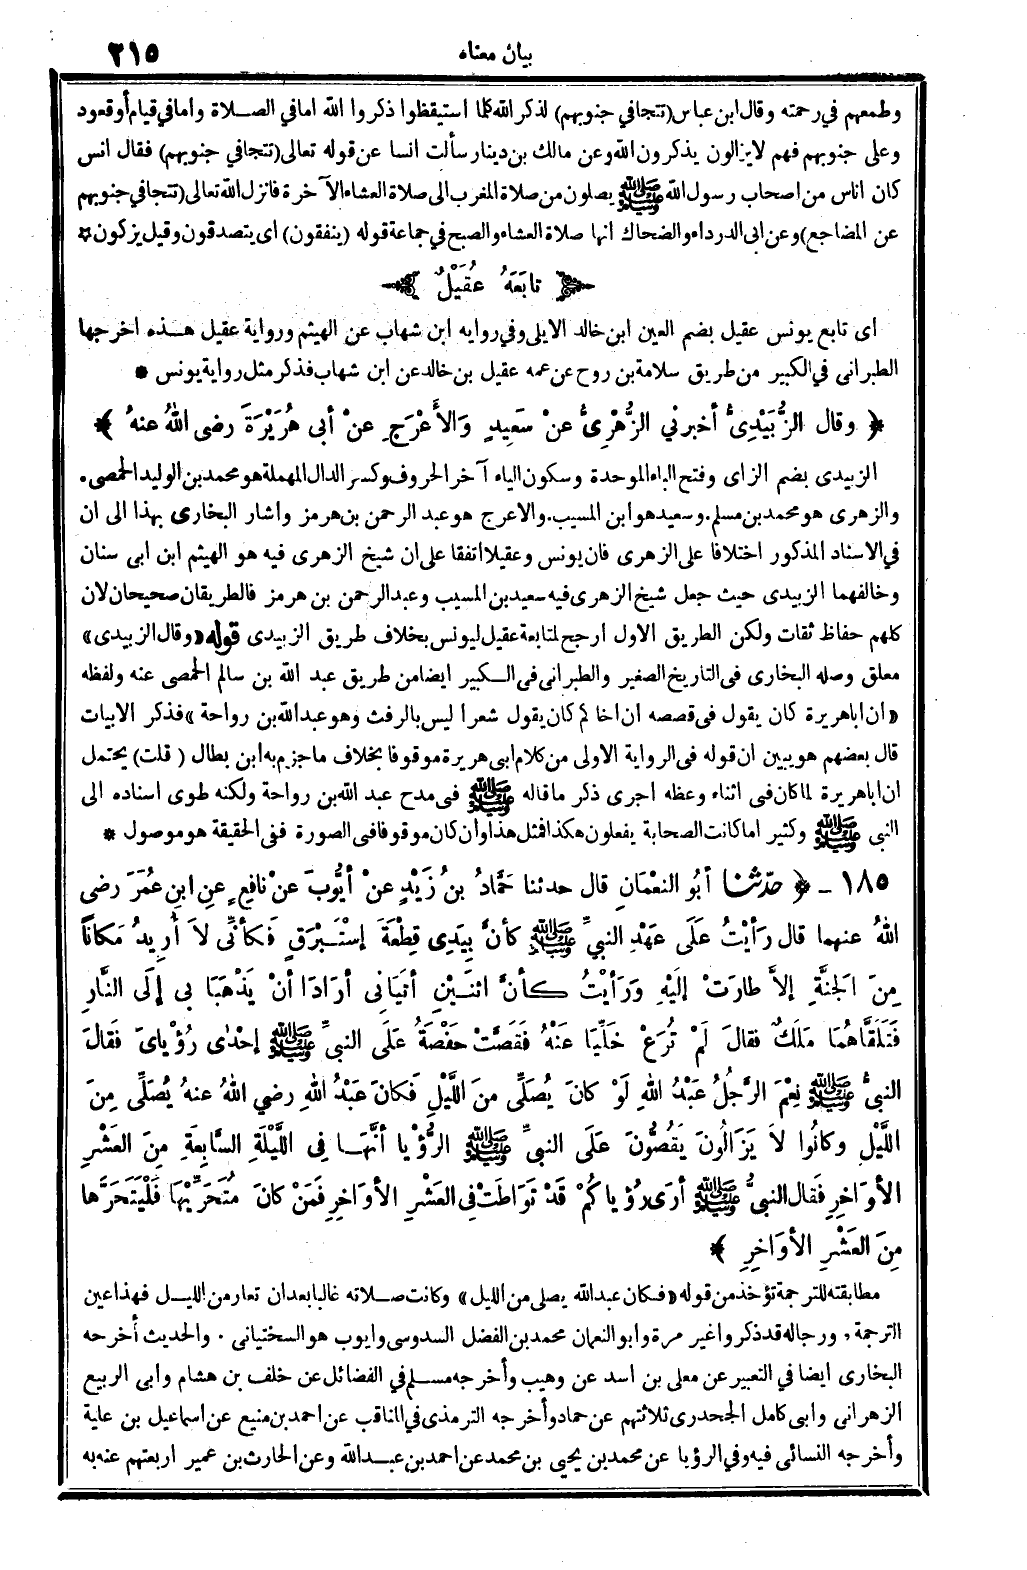 بيان معناه ٢١٥
وطمعهم في رحمته وقال ابن عباس (تتجافي جنوبهم) لذكر الله كلما استيقظوا ذكروا الله اما في الصلاة واما في قيام أو قعود
وعلى جنوبهم فهم لا يزالون يذكرون الله وعن مالك بن دينار سألت انسا عن قوله تعالى (تتجافي جنوبهم) فقال انس
كان اناس من اصحاب رسول الله ﷺ يصلون من صلاة المغرب الى صلاة العشاء الآخرة فانزل الله تعالى (تتجافي جنوبهم
عن المضاجع) وعن ابى الدرداء والضحاك انها صلاة العشاء والصبح في جماعة قوله (ينفقون) اى يتصدقون وقيل يزكون *
﴿ تابَعَهُ عُقَيْلٌ ﴾
اى تابع يونس عقيل بضم العين ابن خالد الايلى وفي روايه ابن شهاب عن الهيثم ورواية عقيل هذه اخرجها
الطبرانى في الكبير من طريق سلامة بن روح عن عمه عقيل بن خالد عن ابن شهاب فذكر مثل رواية يونس *
﴿ وقال الزُّبَيْدِىُّ أخبرني الزُّهْرِىُّ عنْ سَعِيدٍ وَالأَعْرَجِ عنْ أبى هُرَيْرَةَ رضى اللهُ عنهُ ﴾
الزبيدى بضم الزاى وفتح الباء الموحدة وسكون الياء آخر الحروف وكسر الدال المهملة هو محمد بن الوليد الحمصى.
والزهرى هو محمد بن مسلم. وسعيد هو ابن المسيب. والاعرج هو عبد الرحمن بن هرمز واشار البخارى بهذا الى ان
في الاسناد المذكور اختلافا على الزهرى فان يونس وعقيلا اتفقا على ان شيخ الزهرى فيه هو الهيثم ابن ابى سنان
وخالفهما الزبيدى حيث جعل شيخ الزهرى فيه سعيد بن المسيب وعبد الرحمن بن هرمز فالطريقان صحيحان لان
كلهم حفاظ ثقات ولكن الطريق الاول ارجح لمتابعة عقيل ليونس بخلاف طريق الزبيدى قوله «وقال الزبيدى»
معلق وصله البخارى فى التاريخ الصغير والطبرانى فى الكبير ايضا من طريق عبد الله بن سالم الحمصى عنه ولفظه
«ان اباهريرة كان يقول فى قصصه ان اخا لكم كان يقول شعرا ليس بالرفث وهو عبد الله بن رواحة» فذكر الابيات
قال بعضهم هو يبين ان قوله فى الرواية الاولى من كلام ابى هريرة موقوفا بخلاف ما جزم به ابن بطال (قلت) يحتمل
ان اباهريرة لما كان فى اثناء وعظه اجرى ذكر ما قاله ﷺ فى مدح عبد الله بن رواحة ولكنه طوى اسناده الى
النبى ﷺ وكثير اما كانت الصحابة يفعلون هكذا فمثل هذا وان كان موقوفا فى الصورة ففى الحقيقة هو موصول *
١٨٥ - ﴿ حدّثنا أبُو النعْمَانِ قال حدثنا حَمَّادُ بنُ زَيْدٍ عنْ أيُّوبَ عنْ نافِعٍ عنِ ابنِ عُمَرَ رضى
اللهُ عنهما قال رَأيْتُ عَلَى عَهْدِ النبيِّ ﷺ كأنَّ بِيَدِى قِطْعَةَ إسْتَبْرَقٍ فَكأنِّى لاَ أُرِيدُ مَكاناً
مِنَ الجَنَّةِ إلاَّ طارَتْ إلَيْهِ وَرَأيْتُ كأنَّ اثنَيْنِ أتَيَانى أرَادَا أنْ يَذْهَبَا بى إلَى النَّارِ
فَتَلَقَّاهُمَا مَلَكٌ فقالَ لَمْ تُرَعْ خَلِّيَا عَنْهُ فَقَصَّتْ حَفْصَةُ عَلَى النبيِّ ﷺ إحْدَى رُؤْياىَ فَقالَ
النبيُّ ﷺ نِعْمَ الرَّجُلُ عَبْدُ اللهِ لَوْ كانَ يُصَلِّى منَ اللَّيْلِ فَكانَ عَبْدُ اللهِ رضي اللهُ عنهُ يُصَلِّى مِنَ
اللَّيْلِ وكانُوا لاَ يَزَالُونَ يَقُصُّونَ عَلَى النبيِّ ﷺ الرُّؤْيا أنَّهَا فِى اللَّيْلَةِ السَّابِعَةِ مِنَ العَشْرِ
الأوَاخِرِ فَقال النبيُّ ﷺ أرَى رُؤْياكُمْ قَدْ تَوَاطَتْ فِى العَشْرِ الأوَاخِرِ فَمَنْ كانَ مُتَحَرِّيهَا فَلْيَتَحَرَّها
مِنَ العَشْرِ الأوَاخِرِ ﴾
مطابقته للترجمة تؤخذ من قوله «فكان عبد الله يصلى من الليل» وكانت صلاته غالبا بعد ان تعار من الليل فهذا عين
الترجمة، ورجاله قد ذكروا غير مرة وابو النعمان محمد بن الفضل السدوسى وايوب هو السختيانى. والحديث أخرجه
البخارى ايضا في التعبير عن معلى بن اسد عن وهيب وأخرجه مسلم في الفضائل عن خلف بن هشام وابى الربيع
الزهرانى وابى كامل الجحدرى ثلاثتهم عن حماد وأخرجه الترمذى في المناقب عن احمد بن منيع عن اسماعيل بن علية
وأخرجه النسائى فيه وفي الرؤيا عن محمد بن يحيى بن محمد عن احمد بن عبد الله وعن الحارث بن عمير اربعتهم عنه به